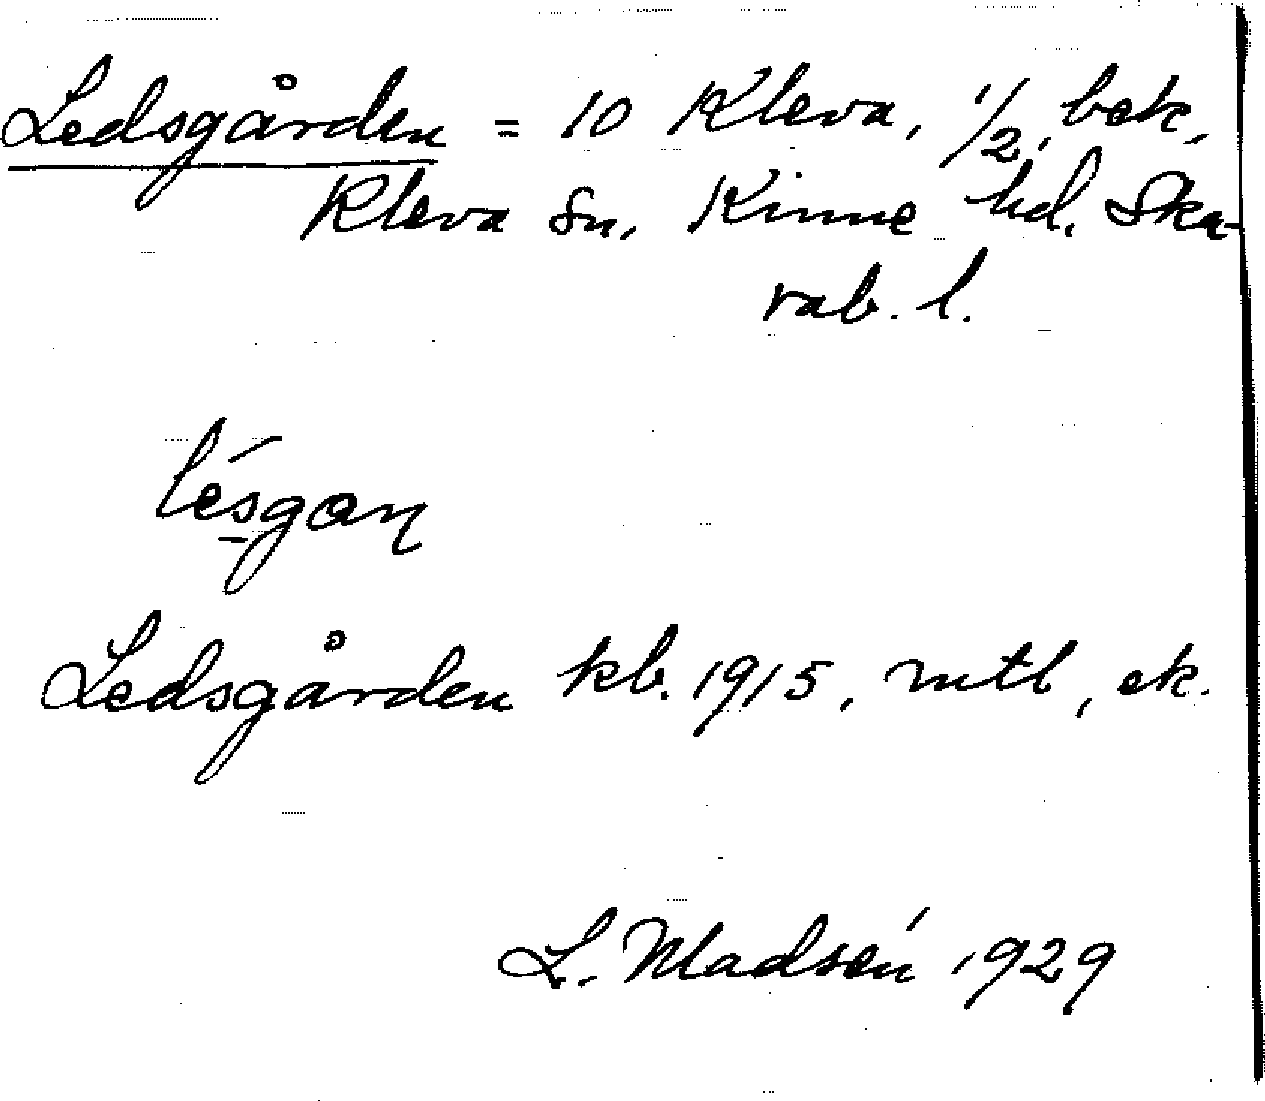 Ledsgården = 10 Kleva, 1/2, bek,
Kleva sn, Kinne hd. Ska-
rab. l.
lésgaɳ
Ledsgården kb. 1915, mtl, ek.
L. Madsén 1929